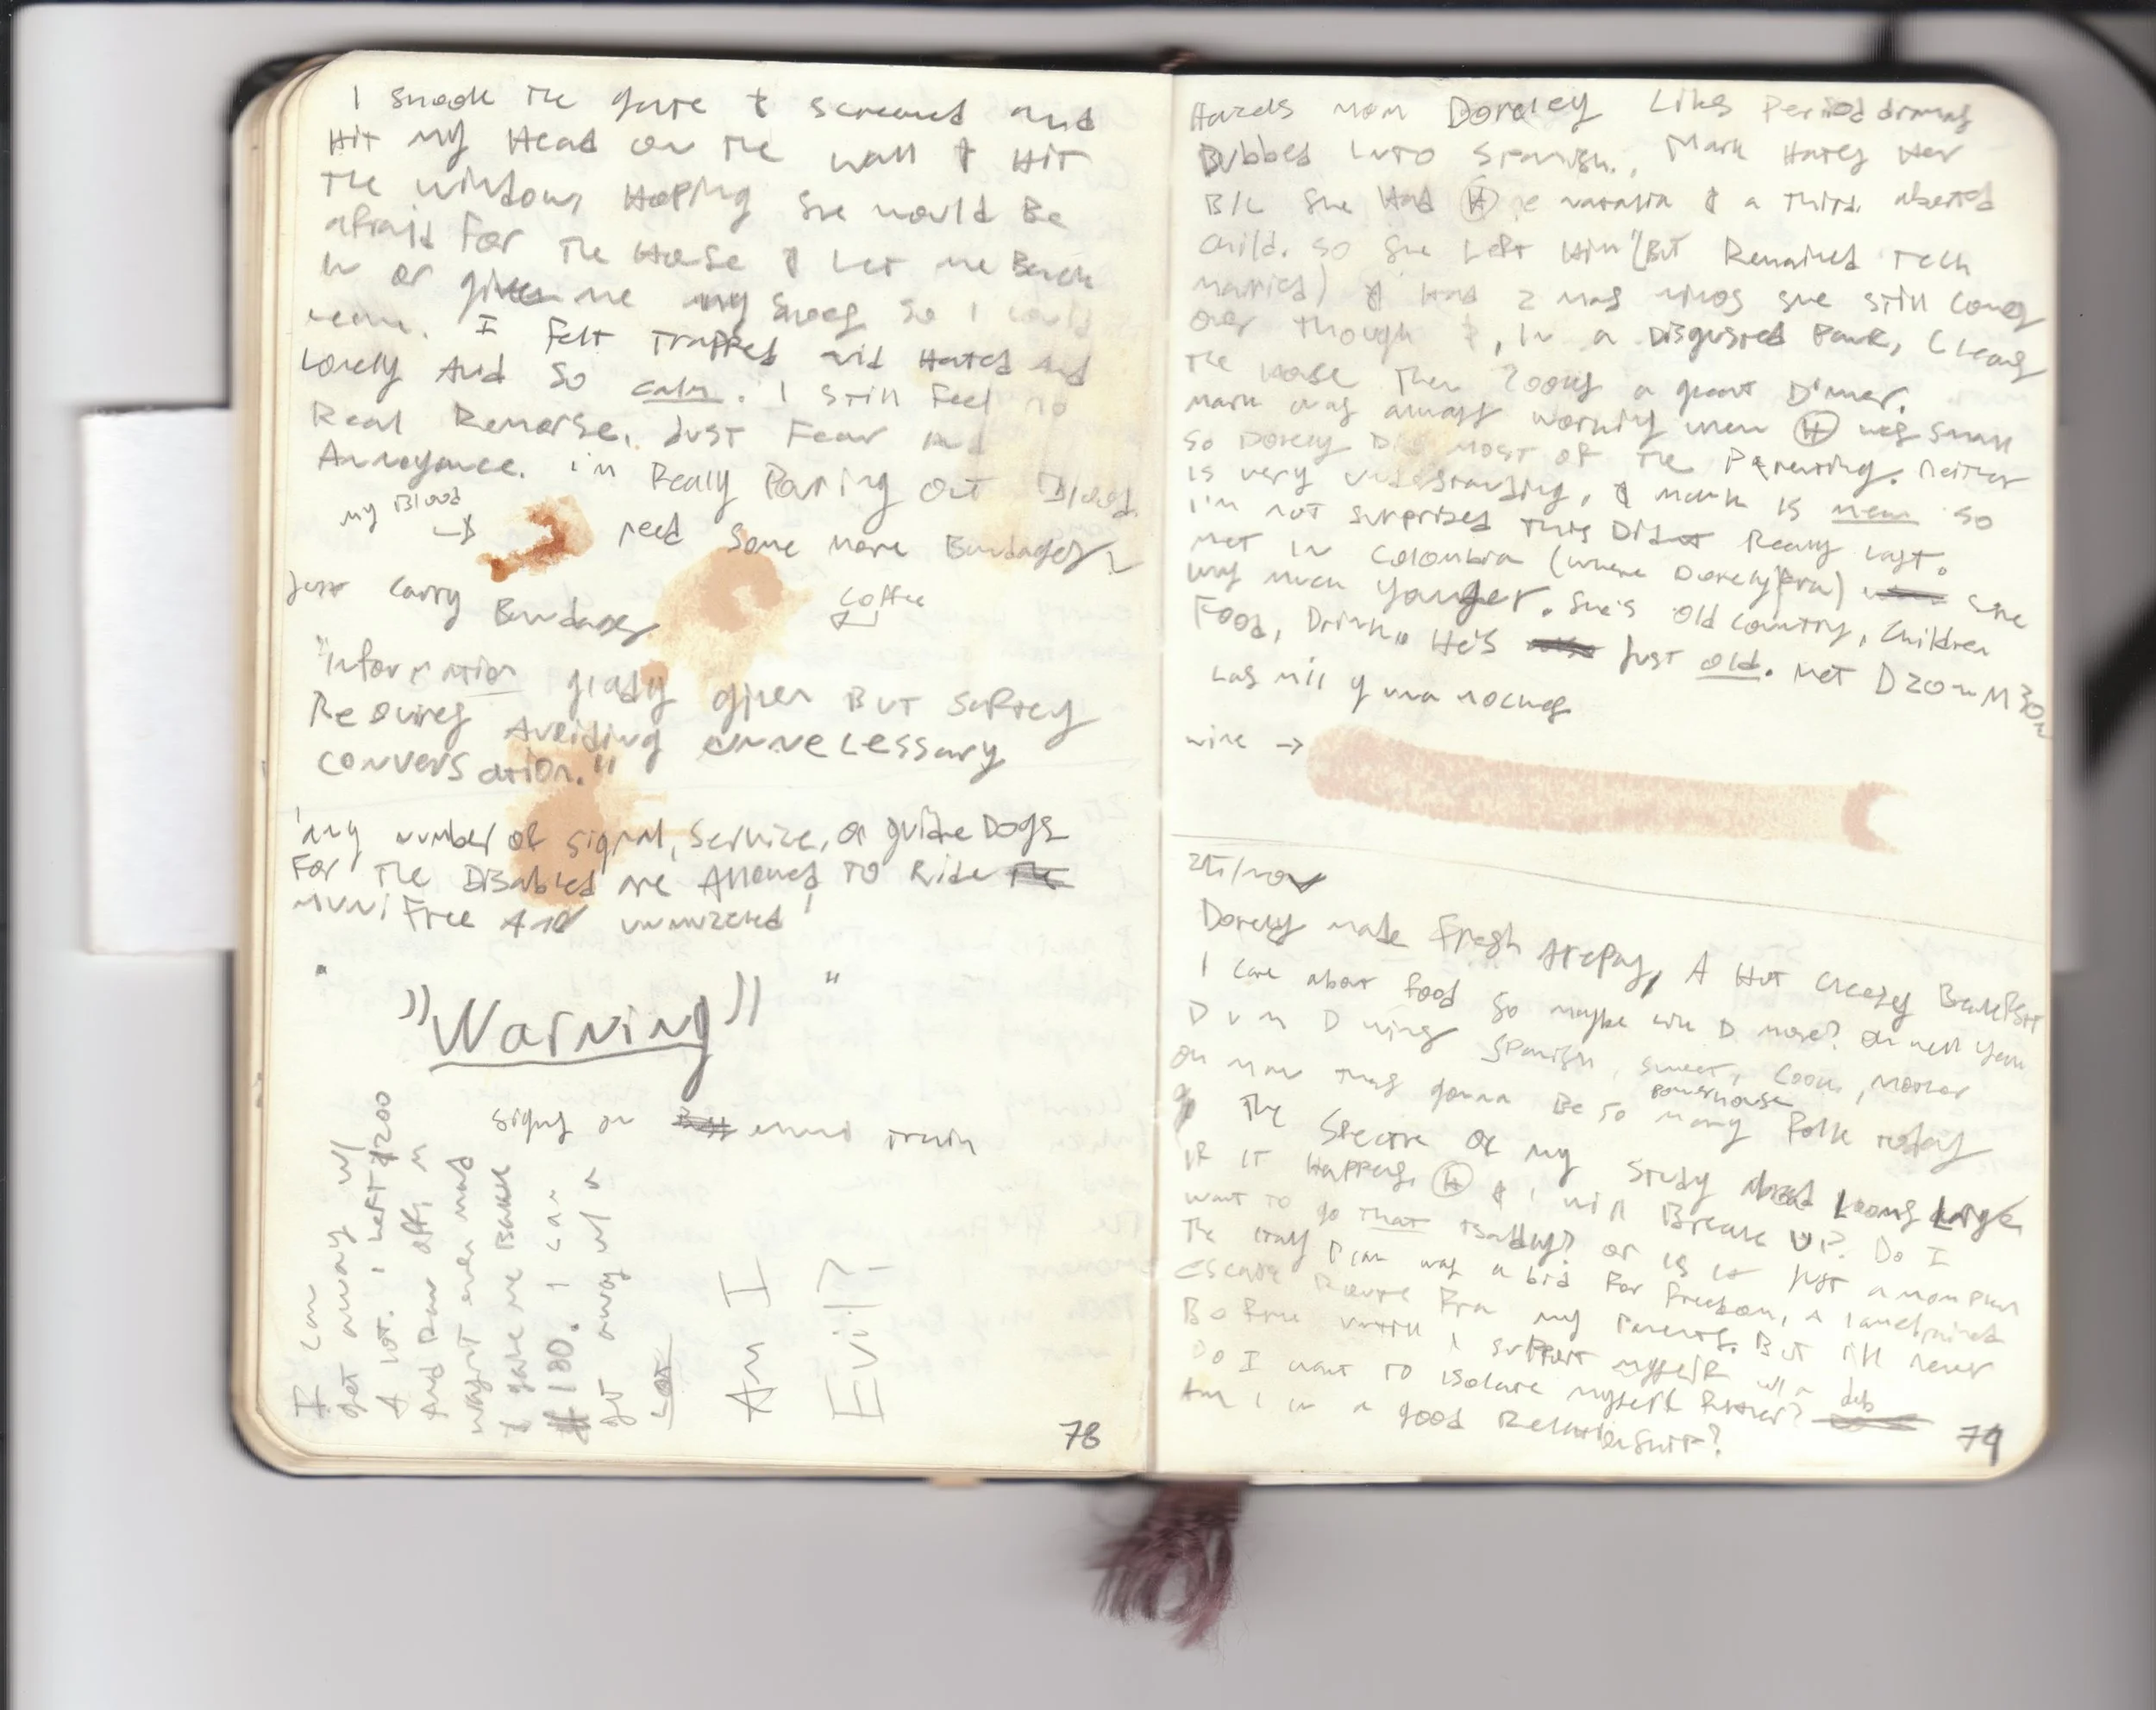 I shook the gate & screamed and
Hit my Head on the wall & Hit
The windows, Hoping She would Be
afraid For The House & Let me Back
in or give me my Shoes So I could
leave. I Felt Trapped and Hated and
Lonely And So calm. I still Feel no
Real Remorse. Just Fear and
Annoyance. i'm Really Pouring out Blood.
my Blood
→
need Some more Bandages
Just Carry Bandages
coffee
"Information gladly given But Safety
Requires Avoiding unnecessary
conversation."
'any number of signal, Service, or guide Dogs
For The Disabled are Allowed To Ride
muni Free And unmuzzled'
"Warning"
signs on muni train
I can
get away w/
A lot. I Left $200
And Dan
wasn't even mad
& gave me Back
$180. I can
get away w/ a
Lot
Am I
Evil?
78
Hazels mom Doreley Likes Period dramas
Dubbed into Spanish. Mark Hates Her
B/c She Had Ⓗ natalia & a third aborted
child. So She Left Him (But Remained Tech
married) & Had 2 mas ninos she still Comes
over though &, in a Disgusted Panic, Cleans
The House Then Cooks a great Dinner.
Mark was always working when Ⓗ was Small
So Dorely Did most of The Parenting. Neither
is very understanding, & Mark is mean so
I'm not surprised This Didnt Really Last.
Met in Colombia (where Dorely from) She
was much younger. She's Old Country, Children
Food, Drink. He's Just old. Met D 20 M 30
Las mil y una noches
wine →
25/nov
Dorely made Fresh Arepas, A Hot Cheesy Breakfast
I care about food So maybe like D more? Oh well
Spanish, sweet, Cook, Mother
on mom thing gonna Be So many Folk today
powerhouse
The Spectre of my Study abroad Looms Large
IF IT Happens, Ⓗ & I will Break Up? Do I
want to do that Badly? or is it Just a
The Italy Plan was a bid For Freedom, a
Escape Route From my Parents. But I'll never
Be Free until I support myself w/ a job
Do I want to isolate myself Further?
Am I in a good Relationship?
79